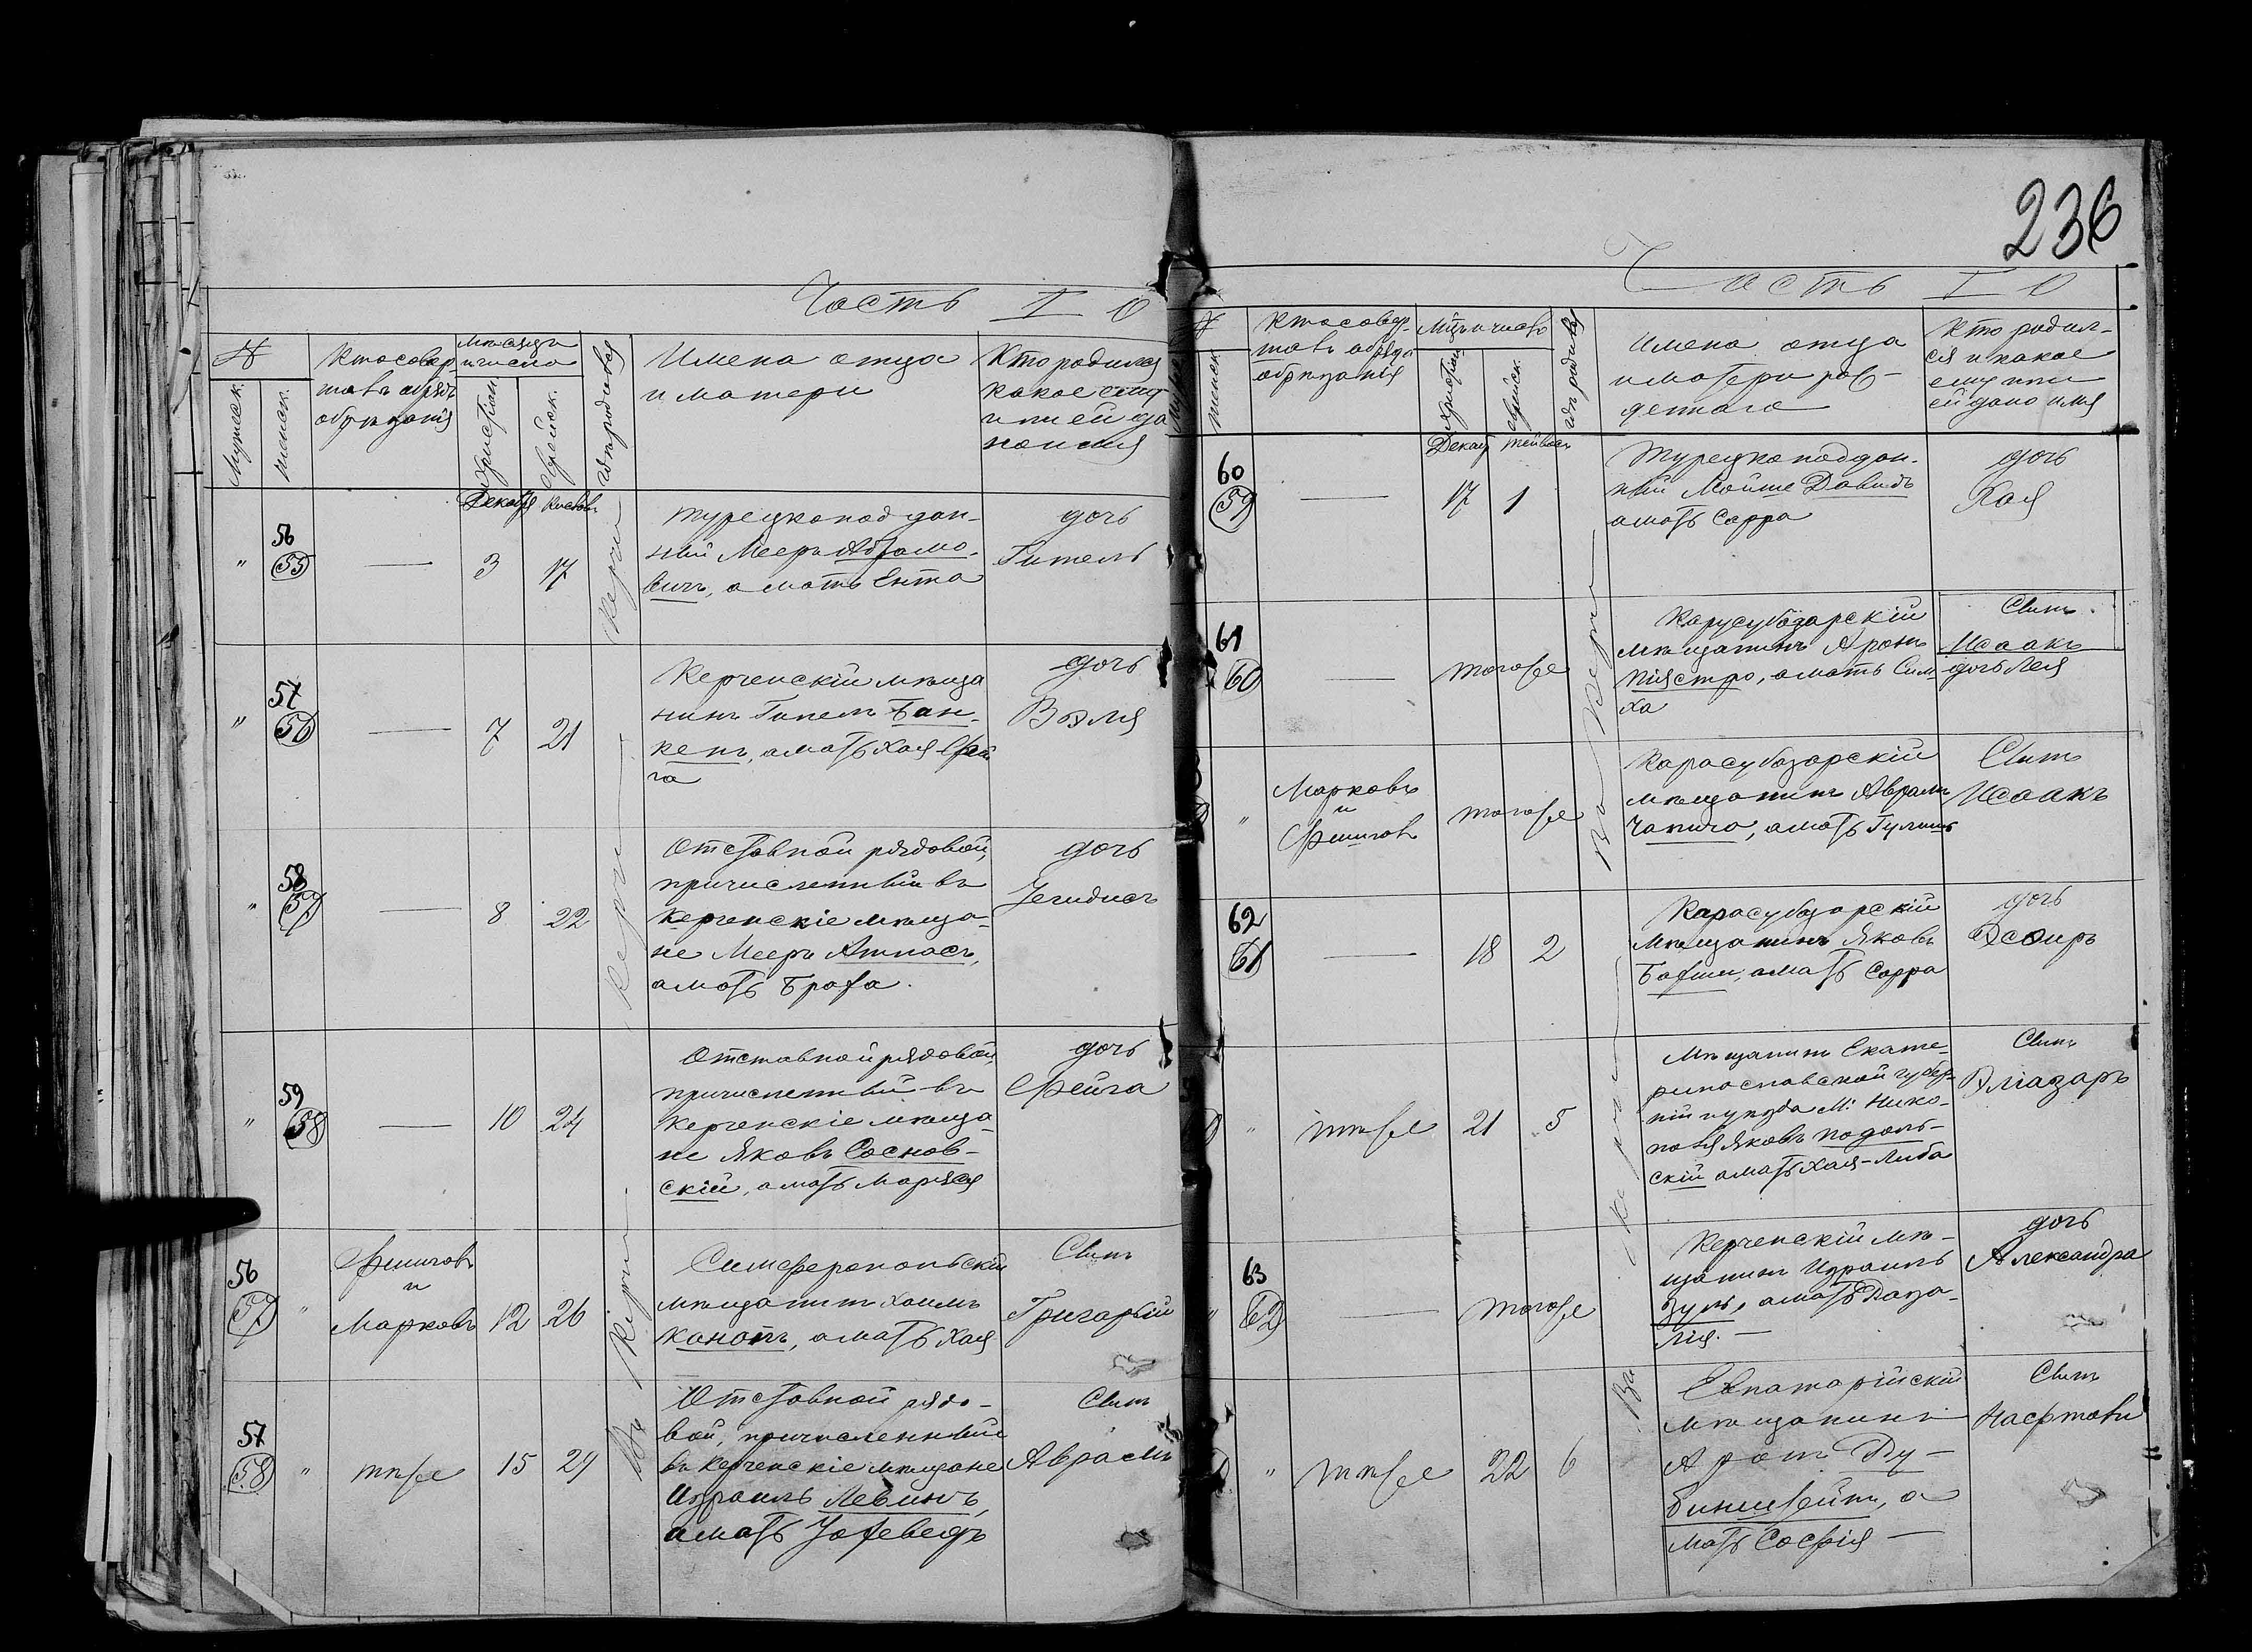 236
Часть I О
№
Мужеск.
Женск.
Кто совер
шавъ обрядъ
обрѣзанія
Мѣсяцъ
и число
Христіан
Еврейск.
гдѣ родився
Имена отца
и матери
Кто родился
какое ему
или ей да
но имя
Декабря Кислевъ
" 56
55
— 3 17
Турецкоподдан-
ный Мееръ Абрамо-
вичъ, а мать Ента
дочь
Гитель
" 57
56
— 7 21
Керченскій мѣща
нинъ
кенъ, а мать Хая Фей
га
дочь
Вэля
" 58
57
— 8 22
Отставной рядовой,
причисленный въ
Керченскіе мѣща-
не Мееръ Атласъ,
а мать
дочь
" 59
58
— 10 24
Отставной рядовой,
причисленный въ
Керченскіе мѣща
не Яковъ Соснов-
скій, а мать Маріяся
дочь
Фейга
56
57 "
и
Марковъ
12 26
Симферопольскій
мѣщанинъ Хаимъ
Канотъ, а мать Хая
Сынъ
Григорый
57
58 "
тѣже
15 29
Отставной рядо-
вой, причисленный
въ Керченскіе мѣщане
Израиль Левинъ,
а мать
Сынъ
Аврамъ
Въ Керчи
Часть I О
№
женск.
Кто совер-
шавъ обряда
обрѣзанія
Мѣць и число
Христіан
Еврейск.
гдѣ родився
Имена отца
и матери рож-
деннаго
Кто родил-
ся и какое
ему или
ей дано имя
Декабр Тейвесъ
60
59
— 17 1
Турецкоподдан-
ный Мойше Давидъ
а мать Сарра
дочь
Хая
61
60
— тогоже
Карусубазарскій
мѣщанинъ Аронъ
Піястро, а мать Сим-
ха
Сынъ
Исаакъ
дочь Лея
"
Марковъ
и
тогоже
Карасубазарскій
мѣщанинъ Аврамъ
а мать
Сынъ
Исаакъ
62
61
— 18 2
Карасубазарскій
мѣщанинъ Яковъ
а мать Сарра
дочь
Эсѳирь
" тѣже 21 5
Мѣщанинъ Екате-
ринославской губер-
ніи и уѣзда М: Нико-
поля Яковъ Подоль-
скій а мать Хая-Либа
Сынъ
Эліазаръ
" 63
62
— тогоже
Керченскій мѣ-
щанинъ Израиль
а мать
дочь
Александра
" тѣже 22 6
Евпаторійскій
мѣщанинъ
Аронъ Ду-
бинштейнъ, а
мать Софія —
Сынъ
Нафтоли
Въ Керчи